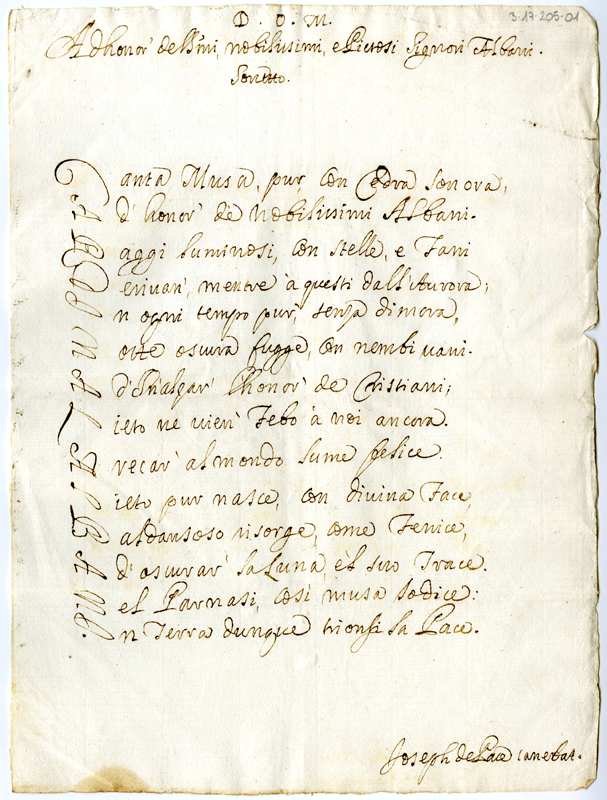 D. O. M.
Ad honor' dell'Ill.mi, nobilissimi, e Pietosi Signori Albani.
Sonetto.
3-17-205-01
Canta Musa, pur, con Cedra sonora,
Ad' honor' de Nobilissimi Albani.
Raggi luminosi, con stelle, e Fani
Deriuan', mentre à questi dall'Aurora;
In ogni tempo pur', senza dimora,
Notte oscura fugge, con nembi uani.
Ad' Inalzar' lhonor' de Cristiani;
Lieto ne vien' Febo à noi ancora.
A recar' al mondo lume felice.
Lieto pur nasce, con divina Face,
Baldansoso risorge, come Fenice,
Ad' oscurar' la Luna, è'l suo Trace.
Nel Parnasi, così musa lo dice:
In Terra dunque trionfi la Pace.
Joseph de Pace